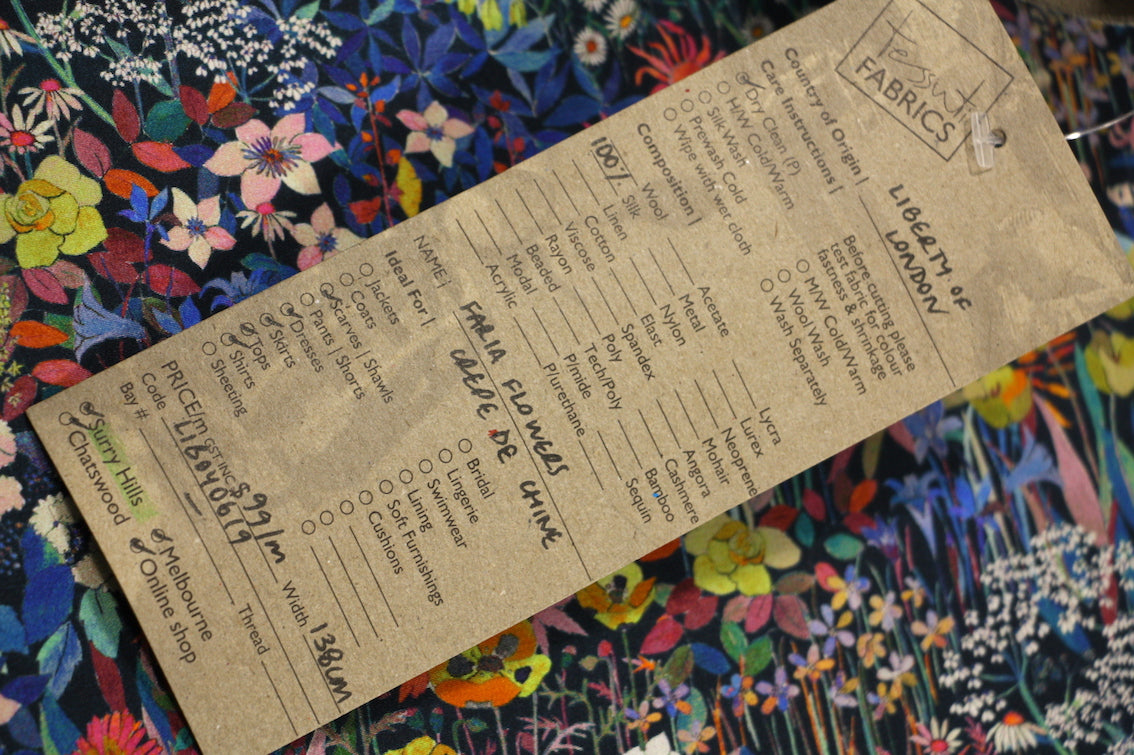 Tessuti
FABRICS
Country of Origin |
LIBERTY OF
LONDON
Care Instructions |
Dry Clean (P)
H/W Cold/Warm
Silk Wash
Prewash Cold
Wipe with wet cloth
Before cutting please
test fabric for colour
fastness & shrinkage
M/W Cold/Warm
Wool Wash
Wash Separately
Composition |
Wool
100% Silk
Linen
Cotton
Viscose
Rayon
Beaded
Modal
Acrylic
Acetate
Metal
Nylon
Elast
Spandex
Poly
Tech/Poly
P/mide
P/urethane
Lycra
Lurex
Neoprene
Mohair
Angora
Cashmere
Bamboo
Sequin
NAME:
FARIA FLOWERS
CREPE DE CHINE
Ideal For |
Jackets
Coats
Scarves | Shawls
Pants | Shorts
Dresses
Skirts
Tops
Shirts
Sheeting
Bridal
Lingerie
Swimwear
Lining
Soft Furnishings
Cushions
PRICE/m GST INC $99/m Width 138cm
Code LIB040619
Bay # Thread
Surry Hills
Chatswood
Melbourne
Online shop